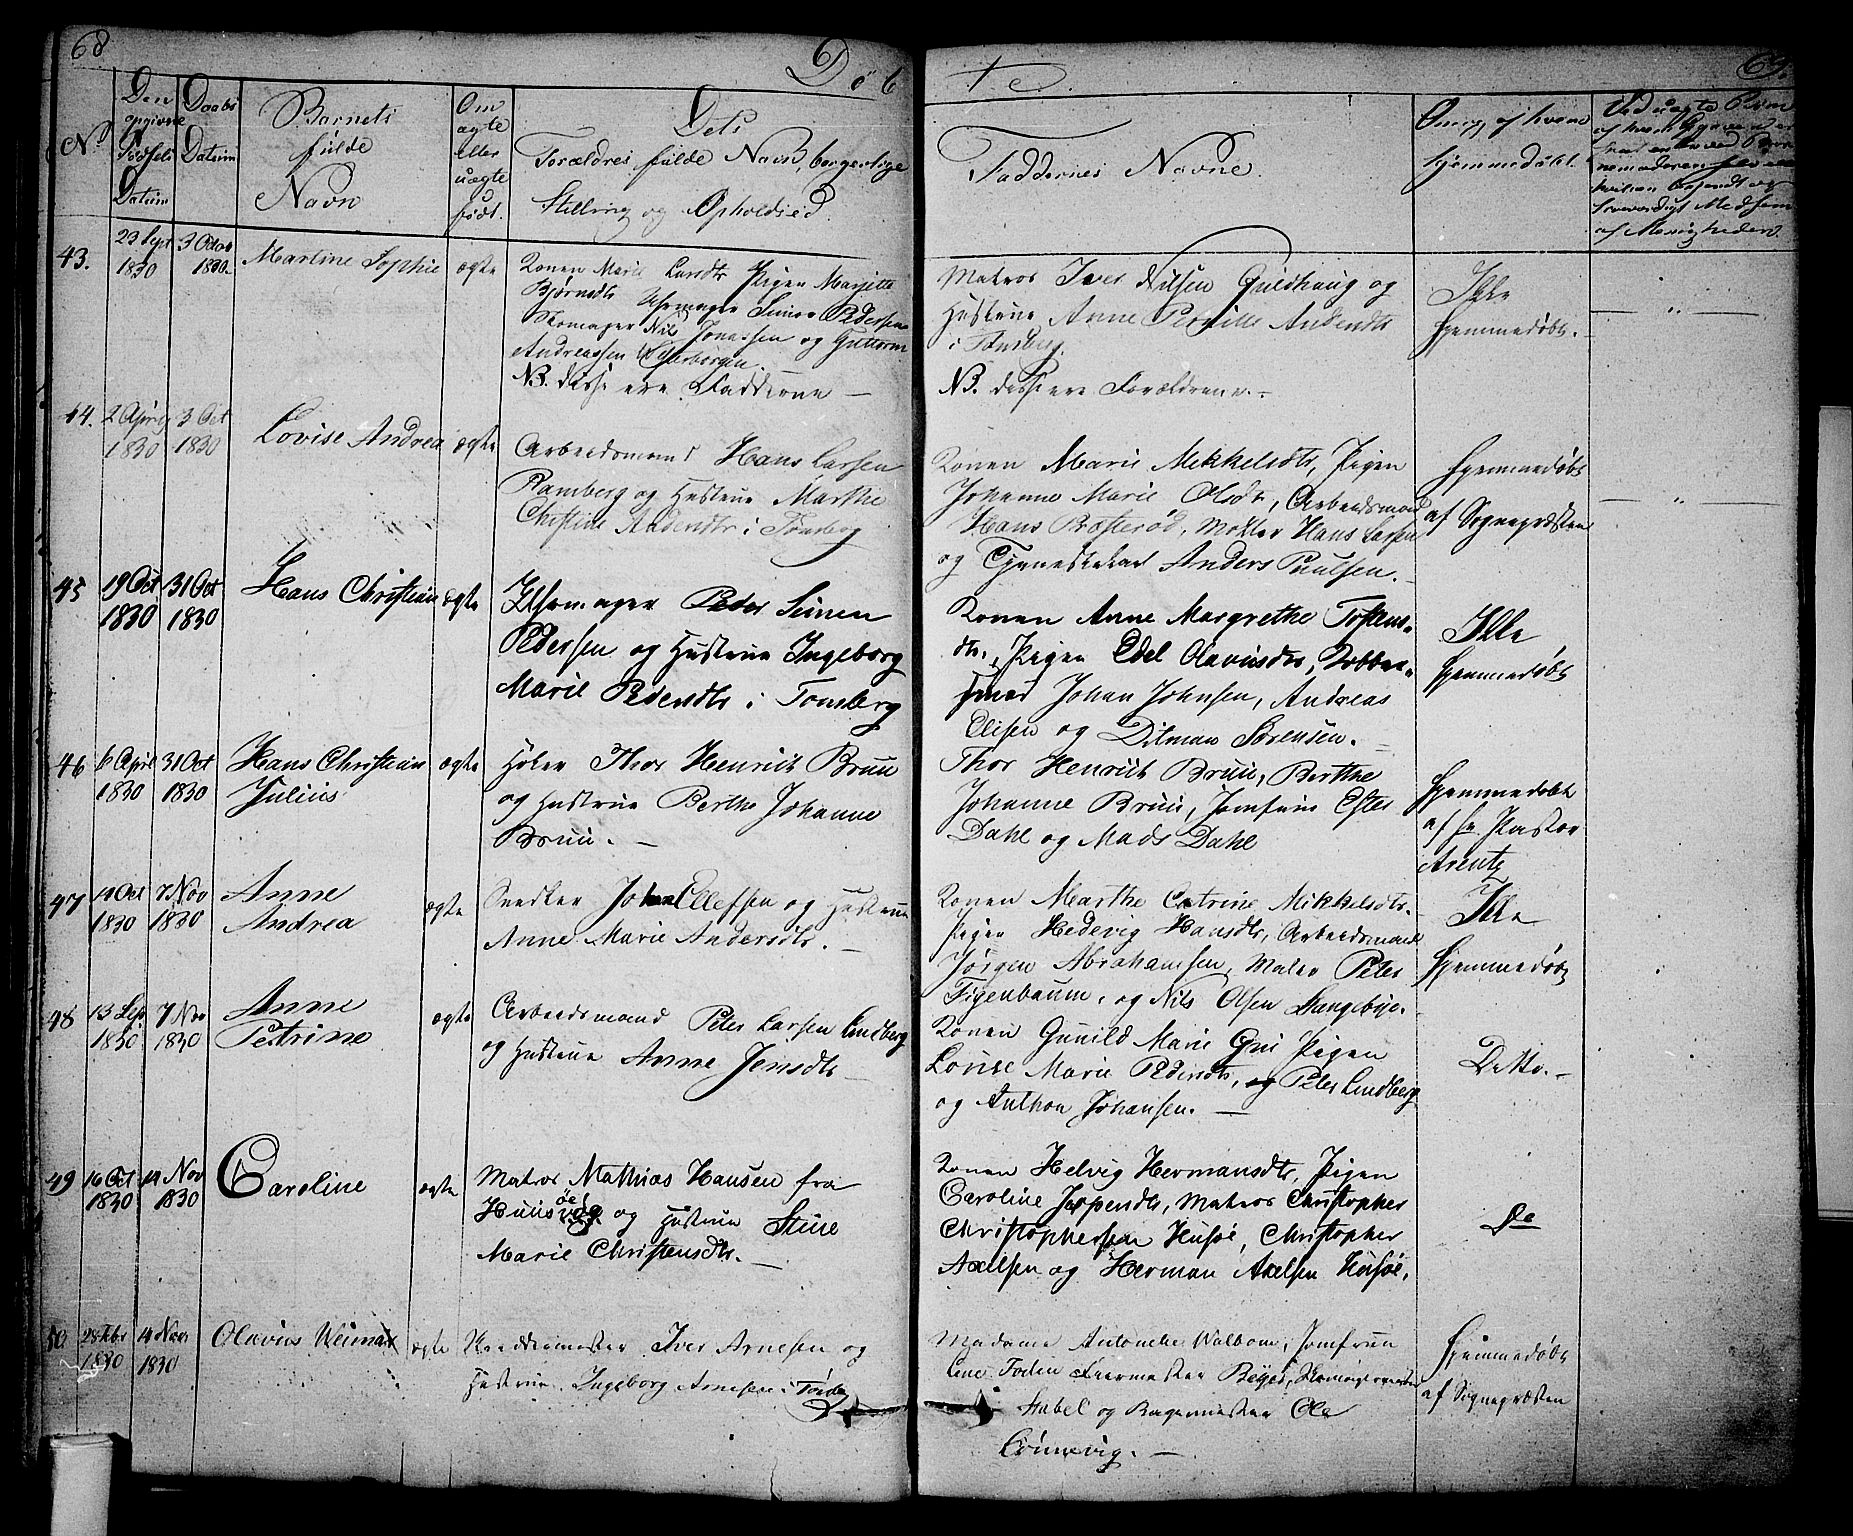 68
Døb
te.
69.
No
Den opgivne Fødsels Datum
Daabs Datum
Barnets fulde Navn
Om ægte eller uægte født.
Dets Forældres fulde Navn, borgerlige Stilling og Opholdsted.
Faddernes Navne.
Om og af hvem hjemmedøbt.
43.
23 Sept 1830
3 Octob 1830
Martine Sophie
ægte
Konen Marie Larsdtr Pigen
Bjørnsdtr Uhrmager Simon Pedersen
Skomager Nils Jonassen og Guttorm
Andreassen
NB. disse ere Fadderne —
Matros Iver Nilsen og
Hustrue Anne Pernille Andersdtr
i Tønsberg.
NB. disse ere Forældrene. —
Ikke
hjemmedøbt.
44.
2 April 1830
3 Oct 1830
Lovise Andrea
ægte
Arbeidsmand Hans Larsen
Ramberg og Hustrue Marthe
Christine Andersdtr i Tønsberg
Konen Marie Mikkelsdtr, Pigen
Johanne Marie Olsdtr, Arbeidsmand
Hans Basterød, Møller Hans Larsen
og Tjenestekarl Anders Paulsen.
hjemmedøbt
af Sognepræsten
45
19 Oct 1830
31 Oct 1830
Hans Christian
ægte
Uhrmager Peder Simen
Pedersen og Hustrue Ingeborg
Marie Pedersdtr i Tønsberg
Konen Anne Margrethe Torstens-
dtr., Pigen Edel Olavusdtr, Kobber-
smed Johan Johnsen, Andreas
Elisen og Ditman Sørensen.
Ikke
hjemmedøbt
46
6 April 1830
31 Oct 1830
Hans Christian
Julius
ægte
Høker Thor Henrich Bruu
og Hustrue Berthe Johanne
Bruu. —
Thor Henrich Bruu, Berthe
Johanne Bruu, Jomfrue Ester
Dahl og Mads Dahl
hjemmedøbt
af Hr Pastor
Arentz
47
7 Nov 1830
Anne
Andrea
ægte
Snedker Johan Ellefsen og Hustrue
Anne Marie Andersdtr. —
Konen Marthe Catrine Mikkelsdtr.
Pigen Hedevig Hansdtr, Arbeidsmand
Jørgen Abrahamsen, Maler Peter
Figenbaum, og Nils Olsen Langebye.
Ikke
hjemmedøbt
48
13 Sep 1830
7 Nov 1830
Anne
Petrine
ægte
Arbeidsmand Peter Larsen Lindberg
og Hustrue Anne Jensdtr —
Konen Gunild Marie Gui Pigen
Lovise Marie Pedersdtr, og Peter Lindberg
og Anthon Johansen. —
Detto. —
49
16 Oct 1830
14 Nov 1830
Caroline
ægte
Matros Mathias Hansen fra
Huusøe og Hustrue Stine
Marie Christensdtr. —
Konen Helvig Hermansdtr, Pigen
Caroline Jespersdtr, Matros Christopher
Christophersen Husøe, Christopher
Axelsen og Herman Axelsen Husøe.
Do
50
28 Febr 1830
14 Nov 1830
Olavus Weimar
ægte
Iver Arnesen og
Hustrue Ingeborg Arnesen i
Madame Antonette Walbom, Jomfrue
Line Foden
Stabel og Bagermester Ole
Lønnevig. —
hjemmedøbt
af Sognepræsten